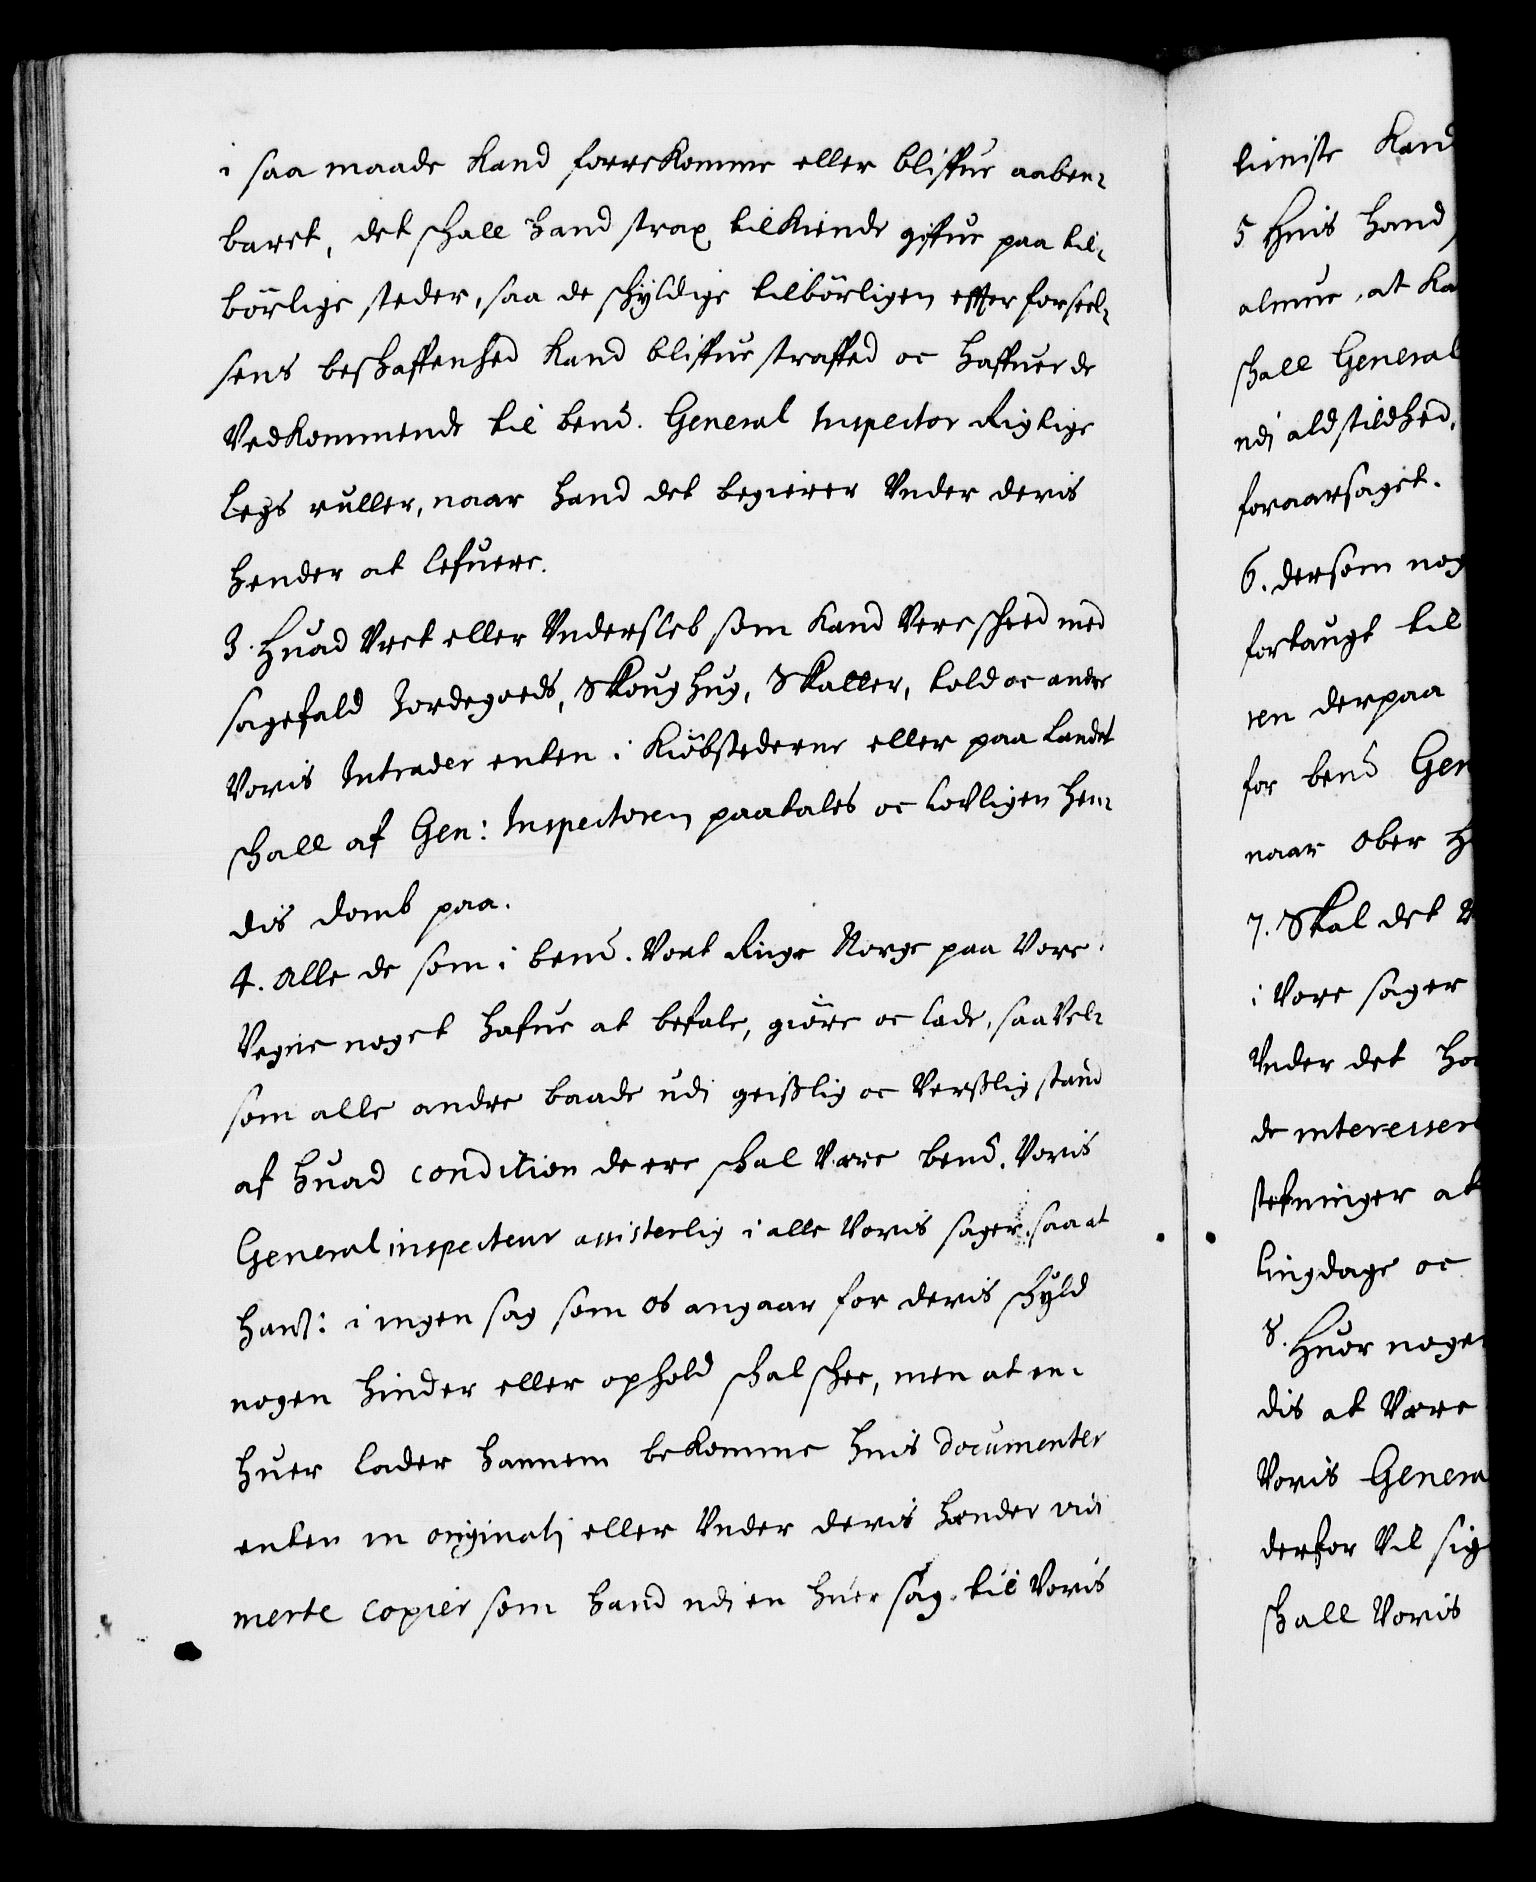 i saa maade kand forrekomme eller bliffue aaben-
baret, det schall hand strax tilkiende giffue paa til-
börlige steder, saa de schyldige tilbörligen effter forseel-
sens beschaffenhed kand bliffue straffed oc haffuer de
Vedkommende til bemt. General Inspector Rigtige
legs ruller, naar hand det begierer Vnder deris
hender at lefuere.
3. Huad Vret eller Vndersleb som kand Vere scheed med
sagefald Jordegoeds, Skoughug, Skatter, told oc andre
Voris Intrader enten i Kiöbstederne eller paa Landet
schall af Gen: Inspectoren paatales oc lovligen hen-
dis domb paa.
4. Alle de som i bemt. Vort Rige Norge paa Vore
Vegne noget hafue at befale, giöre oc lade, saa Vel-
som alle andre baade udi geistlig oc Verslig stand
af huad condition de ere schal Være bemt. Voris
General inspecteur assisterlig i alle Voris sager, saa at
hans: i ingen sag som os angaar for deris schyld
nogen hinder eller ophold schal schee, men at en-
huer lader hannem bekomme huis documenter
enten in originali eller Vnder deris hænder vidi
merte copier som hand udi en huer sag. til Voris
tieniste kand
5 Huis hand
almue, at ka
schall General
udi ald stildhed,
foraarsaget.
6. dersom nog
fortaugt til
ren derpaa
for bemt Gen
naar ober H
7. Skal det V
i Vore sager
Vnder det ha
de interesser
stefninger at
tingdage oc
8. Huor noge
dis at Være
Voris Genera
derfor Vil sig
schall Voris